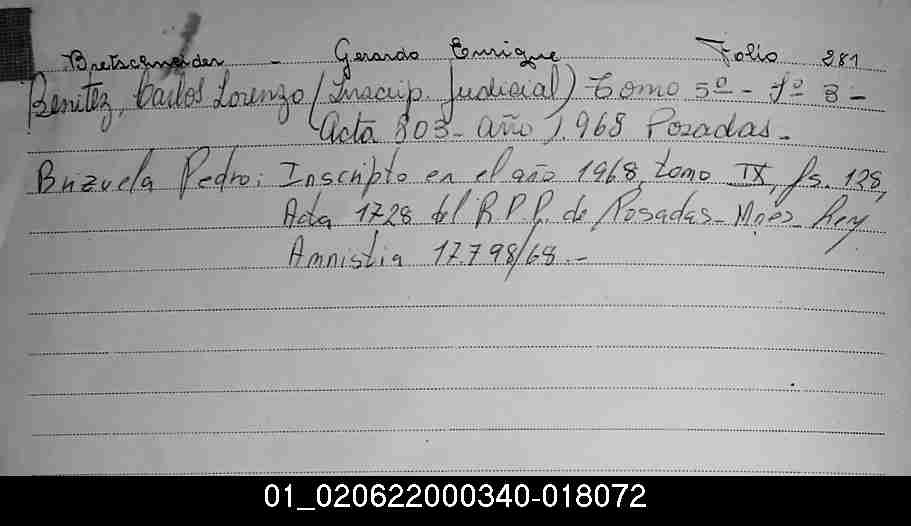 Bretschneider - Gerardo Enrique Folio 281
Benitez, Carlos Lorenzo (Inscrip. Judicial) Tomo 5º - fº 8 -
Acta 803 - año 1.968 Posadas.-
Brizuela Pedro: Inscripto en el año 1968, tomo IX, fs. 128,
Acta 1728 del R.P.P. de Posadas - Mnes - Ley
Amnistia 17.798/68.-
01_020622000340-018072